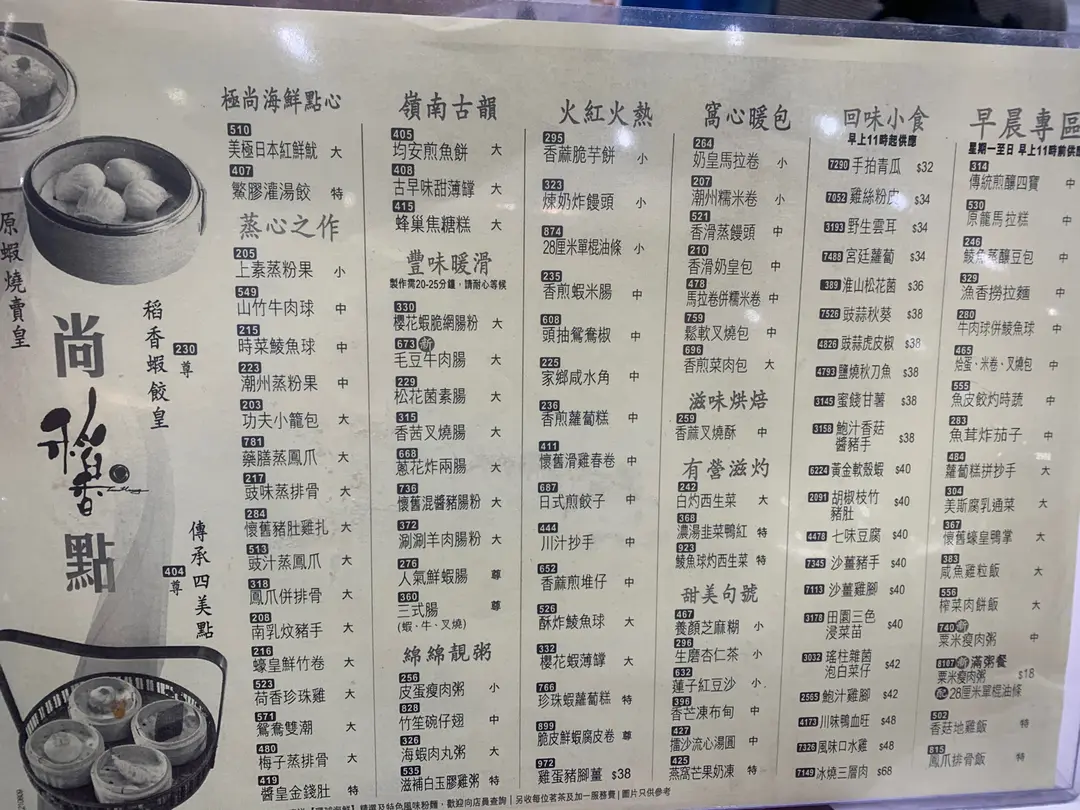 原蝦燒賣皇
稻香蝦餃皇
230
尊
尚
稻香
點
傳承四美點
404
尊
極尚海鮮點心
510
美極日本紅鮮魷 大
407
鱉膠灌湯餃 特
蒸心之作
205
上素蒸粉果 小
549
山竹牛肉球 中
215
時菜鯪魚球 中
223
潮州蒸粉果 中
203
功夫小籠包 大
781
藥膳蒸鳳爪 大
217
豉味蒸排骨 大
284
懷舊豬肚雞扎 大
513
豉汁蒸鳳爪 大
318
鳳爪併排骨 大
208
南乳炆豬手 大
216
蠔皇鮮竹卷 大
523
荷香珍珠雞 大
571
鴛鴦雙潮 大
480
梅子蒸排骨 大
419
醬皇金錢肚 特
嶺南古韻
405
均安煎魚餅 大
408
古早味甜薄罉 大
415
蜂巢焦糖糕 大
豐味暖滑
製作需20-25分鐘，請耐心等候
330
櫻花蝦脆網腸粉 大
673 新
毛豆牛肉腸 大
229
松花菌素腸 大
315
香茜叉燒腸 大
668
蔥花炸兩腸 大
736
懷舊混醬豬腸粉 大
372
涮涮羊肉腸粉 大
276
人氣鮮蝦腸 尊
360
三式腸 尊
(蝦·牛·叉燒)
綿綿靚粥
256
皮蛋瘦肉粥 小
828
竹笙碗仔翅 中
326
海蝦肉丸粥 大
535
滋補白玉膠雞粥 特
火紅火熱
295
香蔴脆芋餅 小
323
煉奶炸饅頭 小
874
28厘米單棍油條 小
235
香煎蝦米腸 中
608
頭抽鴛鴦椒 中
225
家鄉咸水角 中
236
香煎蘿蔔糕 中
411
懷舊滑雞春卷 中
687
日式煎餃子 中
444
川汁抄手 中
652
香蔴煎堆仔 中
526
酥炸鯪魚球 大
332
櫻花蝦薄罉 大
766
珍珠蝦蘿蔔糕 特
899
脆皮鮮蝦腐皮卷 尊
972
雞蛋豬腳薑 $38
窩心暖包
264
奶皇馬拉卷 小
207
潮州糯米卷 小
521
香滑蒸饅頭 中
210
香滑奶皇包 中
478
馬拉卷併糯米卷 中
759
鬆軟叉燒包 中
696
香煎菜肉包 大
滋味烘焙
259
香蔴叉燒酥 中
有營滋灼
242
白灼西生菜 大
368
濃湯韭菜鴨紅 特
923
鯪魚球灼西生菜 特
甜美句號
467
養顏芝麻糊 小
298
生磨杏仁茶 小
632
蓮子紅豆沙 小
396
香芒凍布甸 中
427
擂沙流心湯圓 中
425
燕窩芒果奶凍 特
回味小食
早上11時起供應
7290 手拍青瓜 $32
7052 雞絲粉皮 $34
3193 野生雲耳 $34
7488 宮廷蘿蔔 $34
389 淮山松花菌 $36
7526 豉蒜秋葵 $38
4826 豉蒜虎皮椒 $38
4793 鹽燒秋刀魚 $38
3145 蜜餞甘薯 $38
3158 鮑汁香菇
醬豬手 $38
6224 黃金軟殼蝦 $40
2091 胡椒枝竹
豬肚 $40
4478 七味豆腐 $40
7345 沙薑豬手 $40
7113 沙薑雞腳 $40
3178 田園三色
浸菜苗 $40
3032 瑤柱雜菌
泡白菜仔 $42
2565 鮑汁雞腳 $42
4173 川味鴨血旺 $48
7323 風味口水雞 $48
7149 冰燒三層肉 $68
早晨專區
星期一至日 早上11時前供應
314
傳統煎釀四寶 中
530
原龍馬拉糕 中
246
鯪魚蒸釀豆包 中
329
漁香撈拉麵 中
280
牛肉球併鯪魚球 中
465
焓蛋·米卷·叉燒包 中
555
魚皮餃灼時蔬 中
283
魚茸炸茄子 中
484
蘿蔔糕拼抄手 大
304
美斯腐乳通菜 大
367
懷舊蠔皇鴨掌 大
383
咸魚雞粒飯 大
556
榨菜肉餅飯 大
740 新
粟米瘦肉粥 中
8107 新 滿粥餐
粟米瘦肉粥 $18
配 28厘米單棍油條
502
香菇地雞飯 特
815
鳳爪排骨飯 特
精選及特色風味粉麵，歡迎向店員查詢 | 另收每位茗茶及加一服務費 | 圖片只供參考